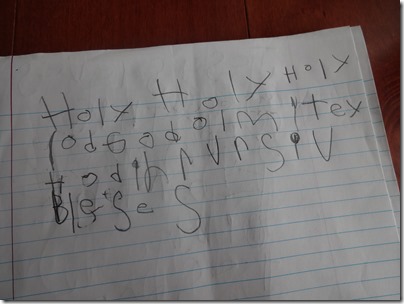 Holy Holy Holy
lodGodolmitex
Hodin RVnSiV
BleSSe S